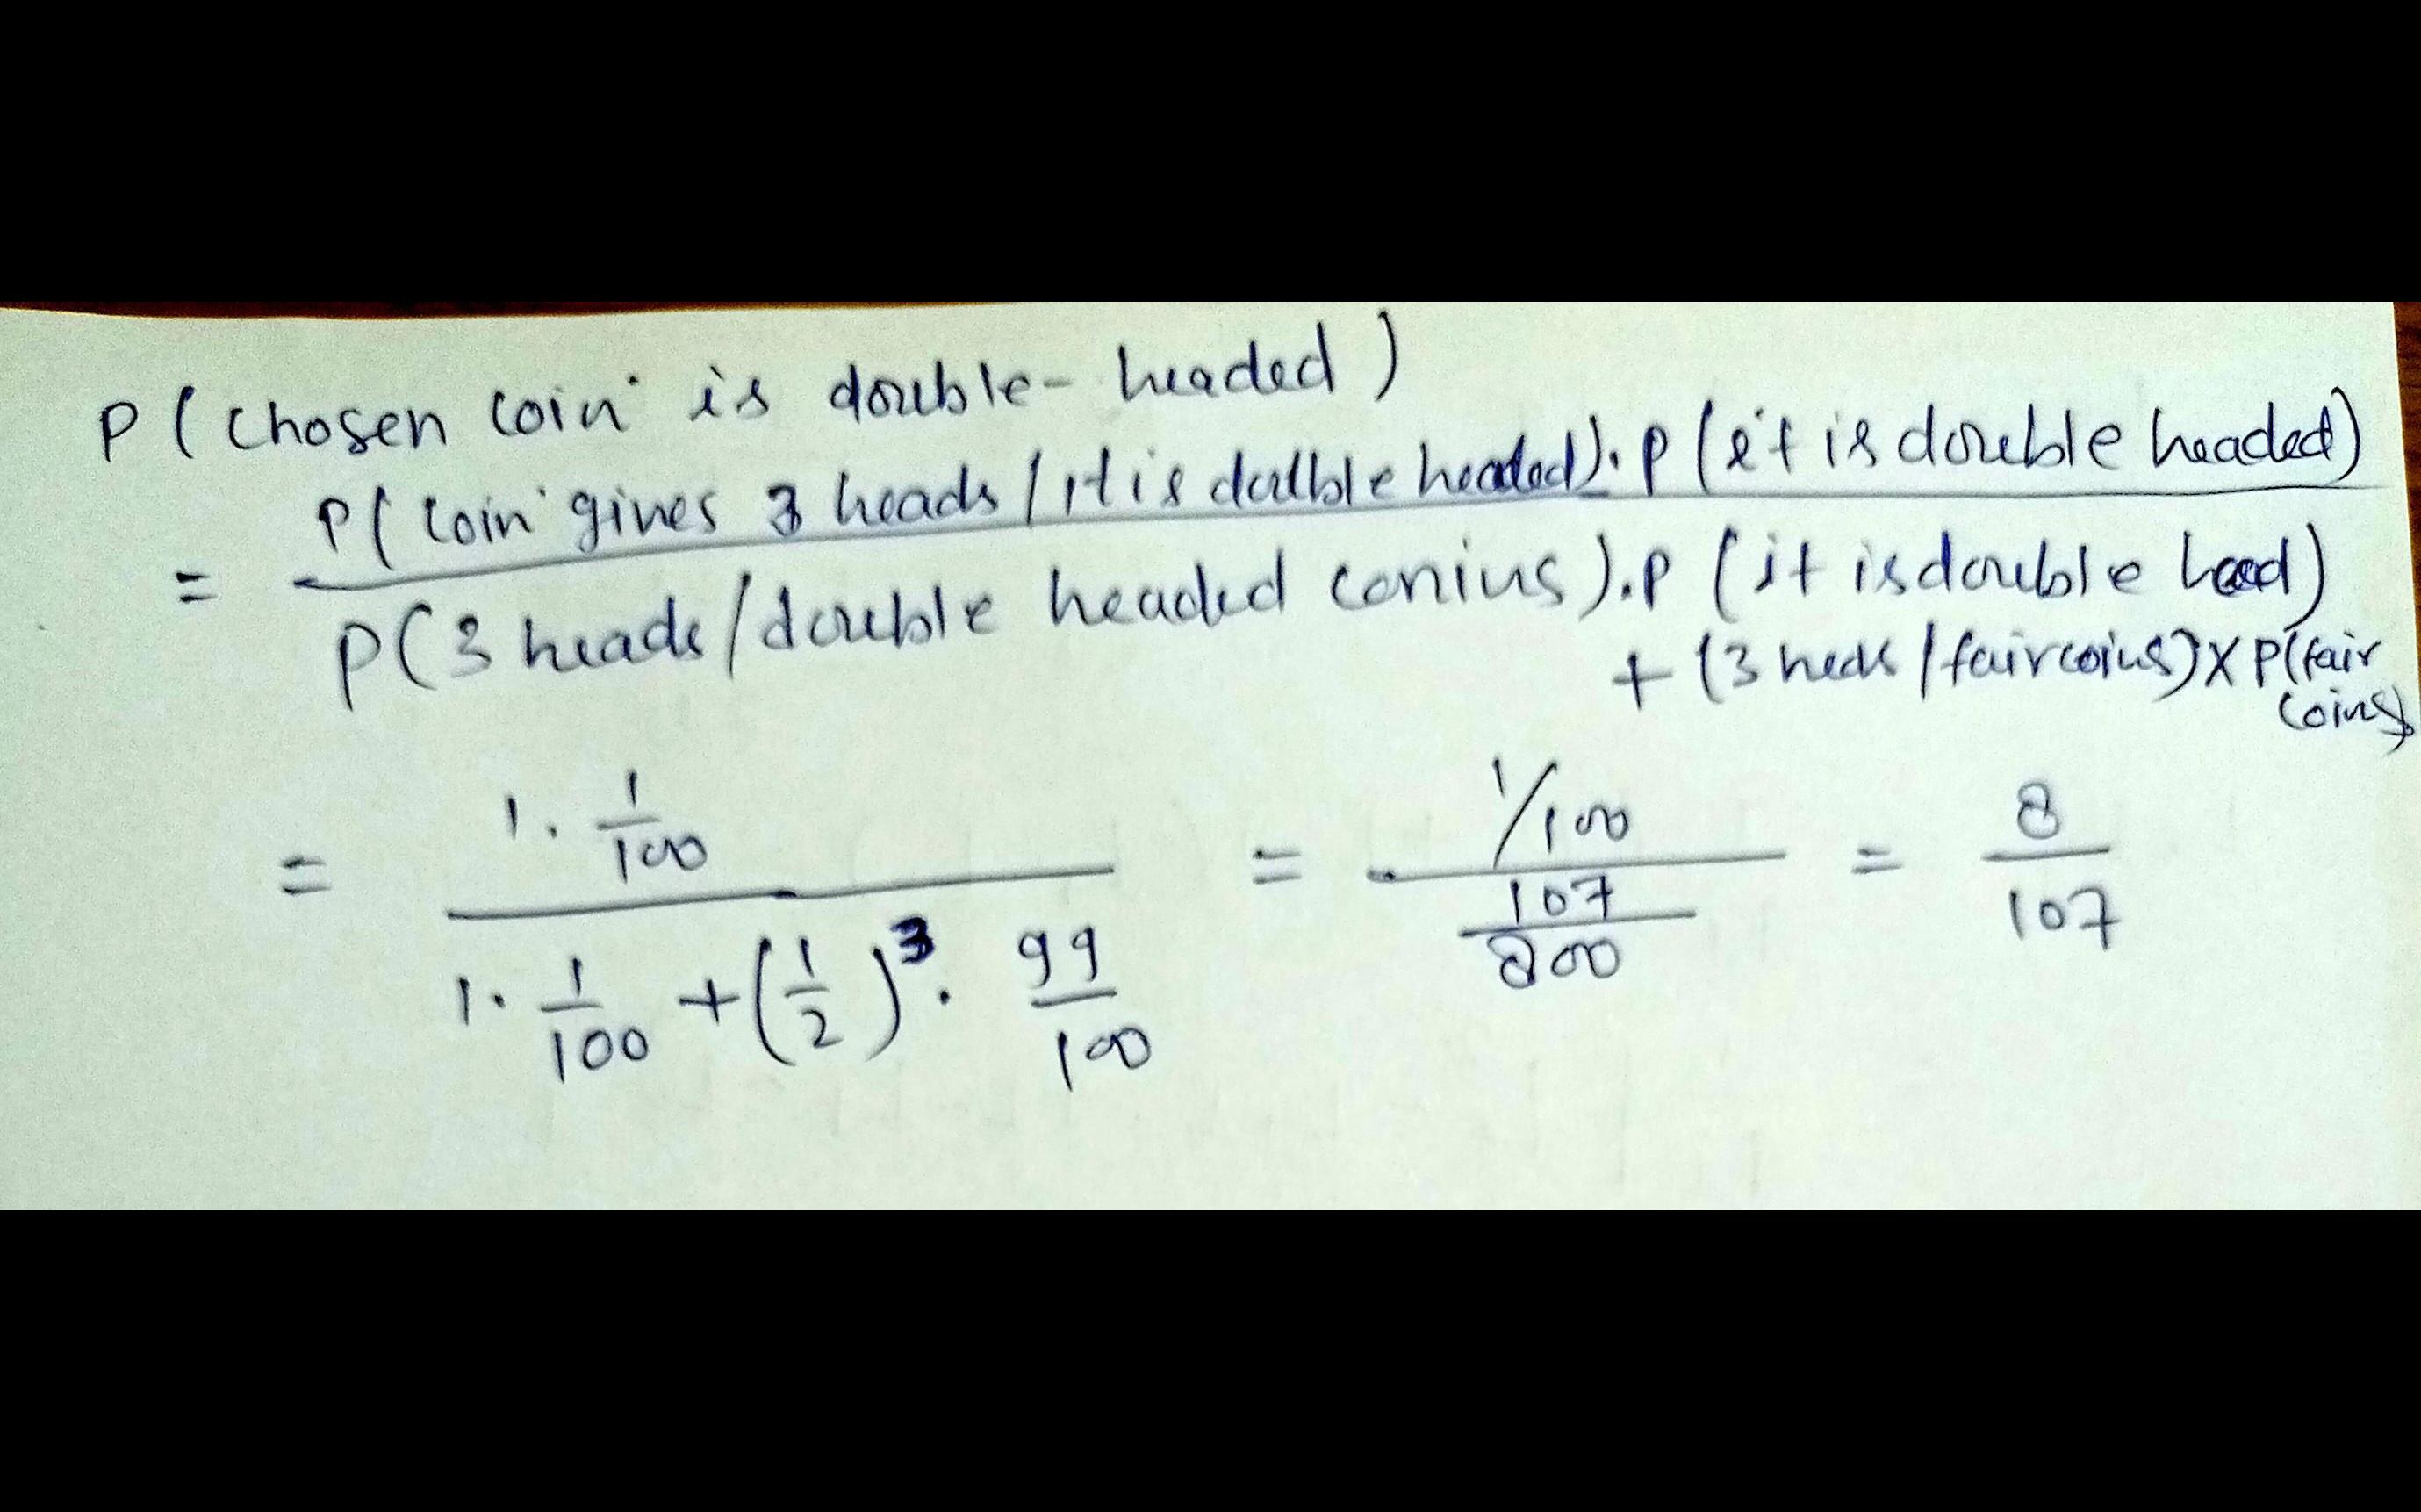 P ( Chosen coin is double-headed )
= P( coin gives 3 heads / it is dallble headed ). P ( it is double headed )
P( 3 heads / double headed conins ). P ( it is double head )
+ ( 3 heds / fair coins ) X P( fair
coins )
= 1. 1/100 / 1. 1/100 + (1/2)^3 . 99/100 = 1/100 / 107/800 = 8/107